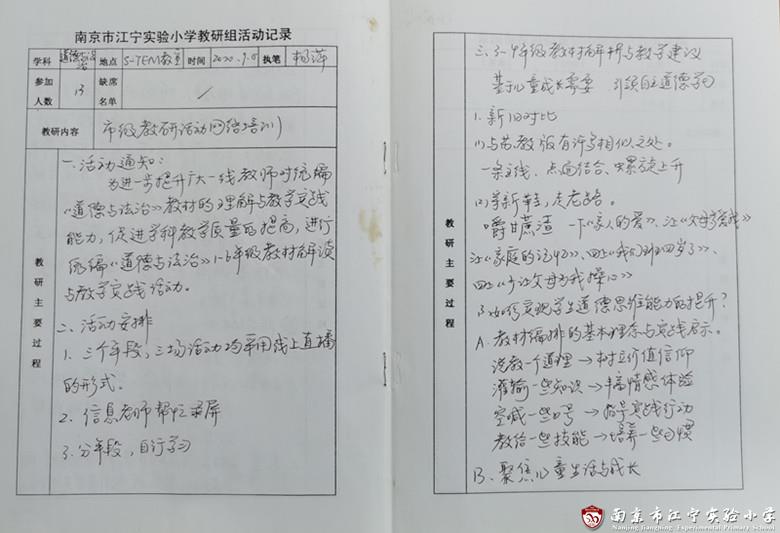 南京市江宁实验小学教研组活动记录
学科 道德与法治 地点 S-TEM教室 时间 2020.9.8 执笔 杨萍
参加人数 13 缺席名单 /
教研内容 市级教研活动网络培训
教研主要过程
一.活动通知:
为进一步提升广大一线教师对统编
《道德与法治》教材的理解与教学实践
能力,促进学科教学质量的提高,进行
统编《道德与法治》1-6年级教材解读
与教学实践活动。
二、活动安排
1. 三个年段,三场活动均采用线上直播
的形式.
2. 信息老师帮忙录屏
3.分年段,自行学习
教研主要过程
三.3-4年级教材解析与教学建议
基于儿童成长需要 引领自主道德学习
1.新旧对比
(1)与苏教版有许多相似之处。
一条主线、点面结合、螺旋上升
(2)穿新鞋,走老路。
嚼甘蔗渣 一下《家人的爱》、三上《父母多爱我》
三上《家庭的记忆》、四上《我们班四岁了》、
四上《少让父母为我操心》
3.如何实现学生道德思维能力的提升?
A.教材编排的基本理念与实践启示。
说教一个道理→树立价值信仰
灌输一些知识→丰富情感体验
空喊一些口号→指导实践行动
教给一些技能→培养一些习惯
B.聚焦儿童生活与成长
南京市江宁实验小学
Nanjing Jiangning Experimental Primary School